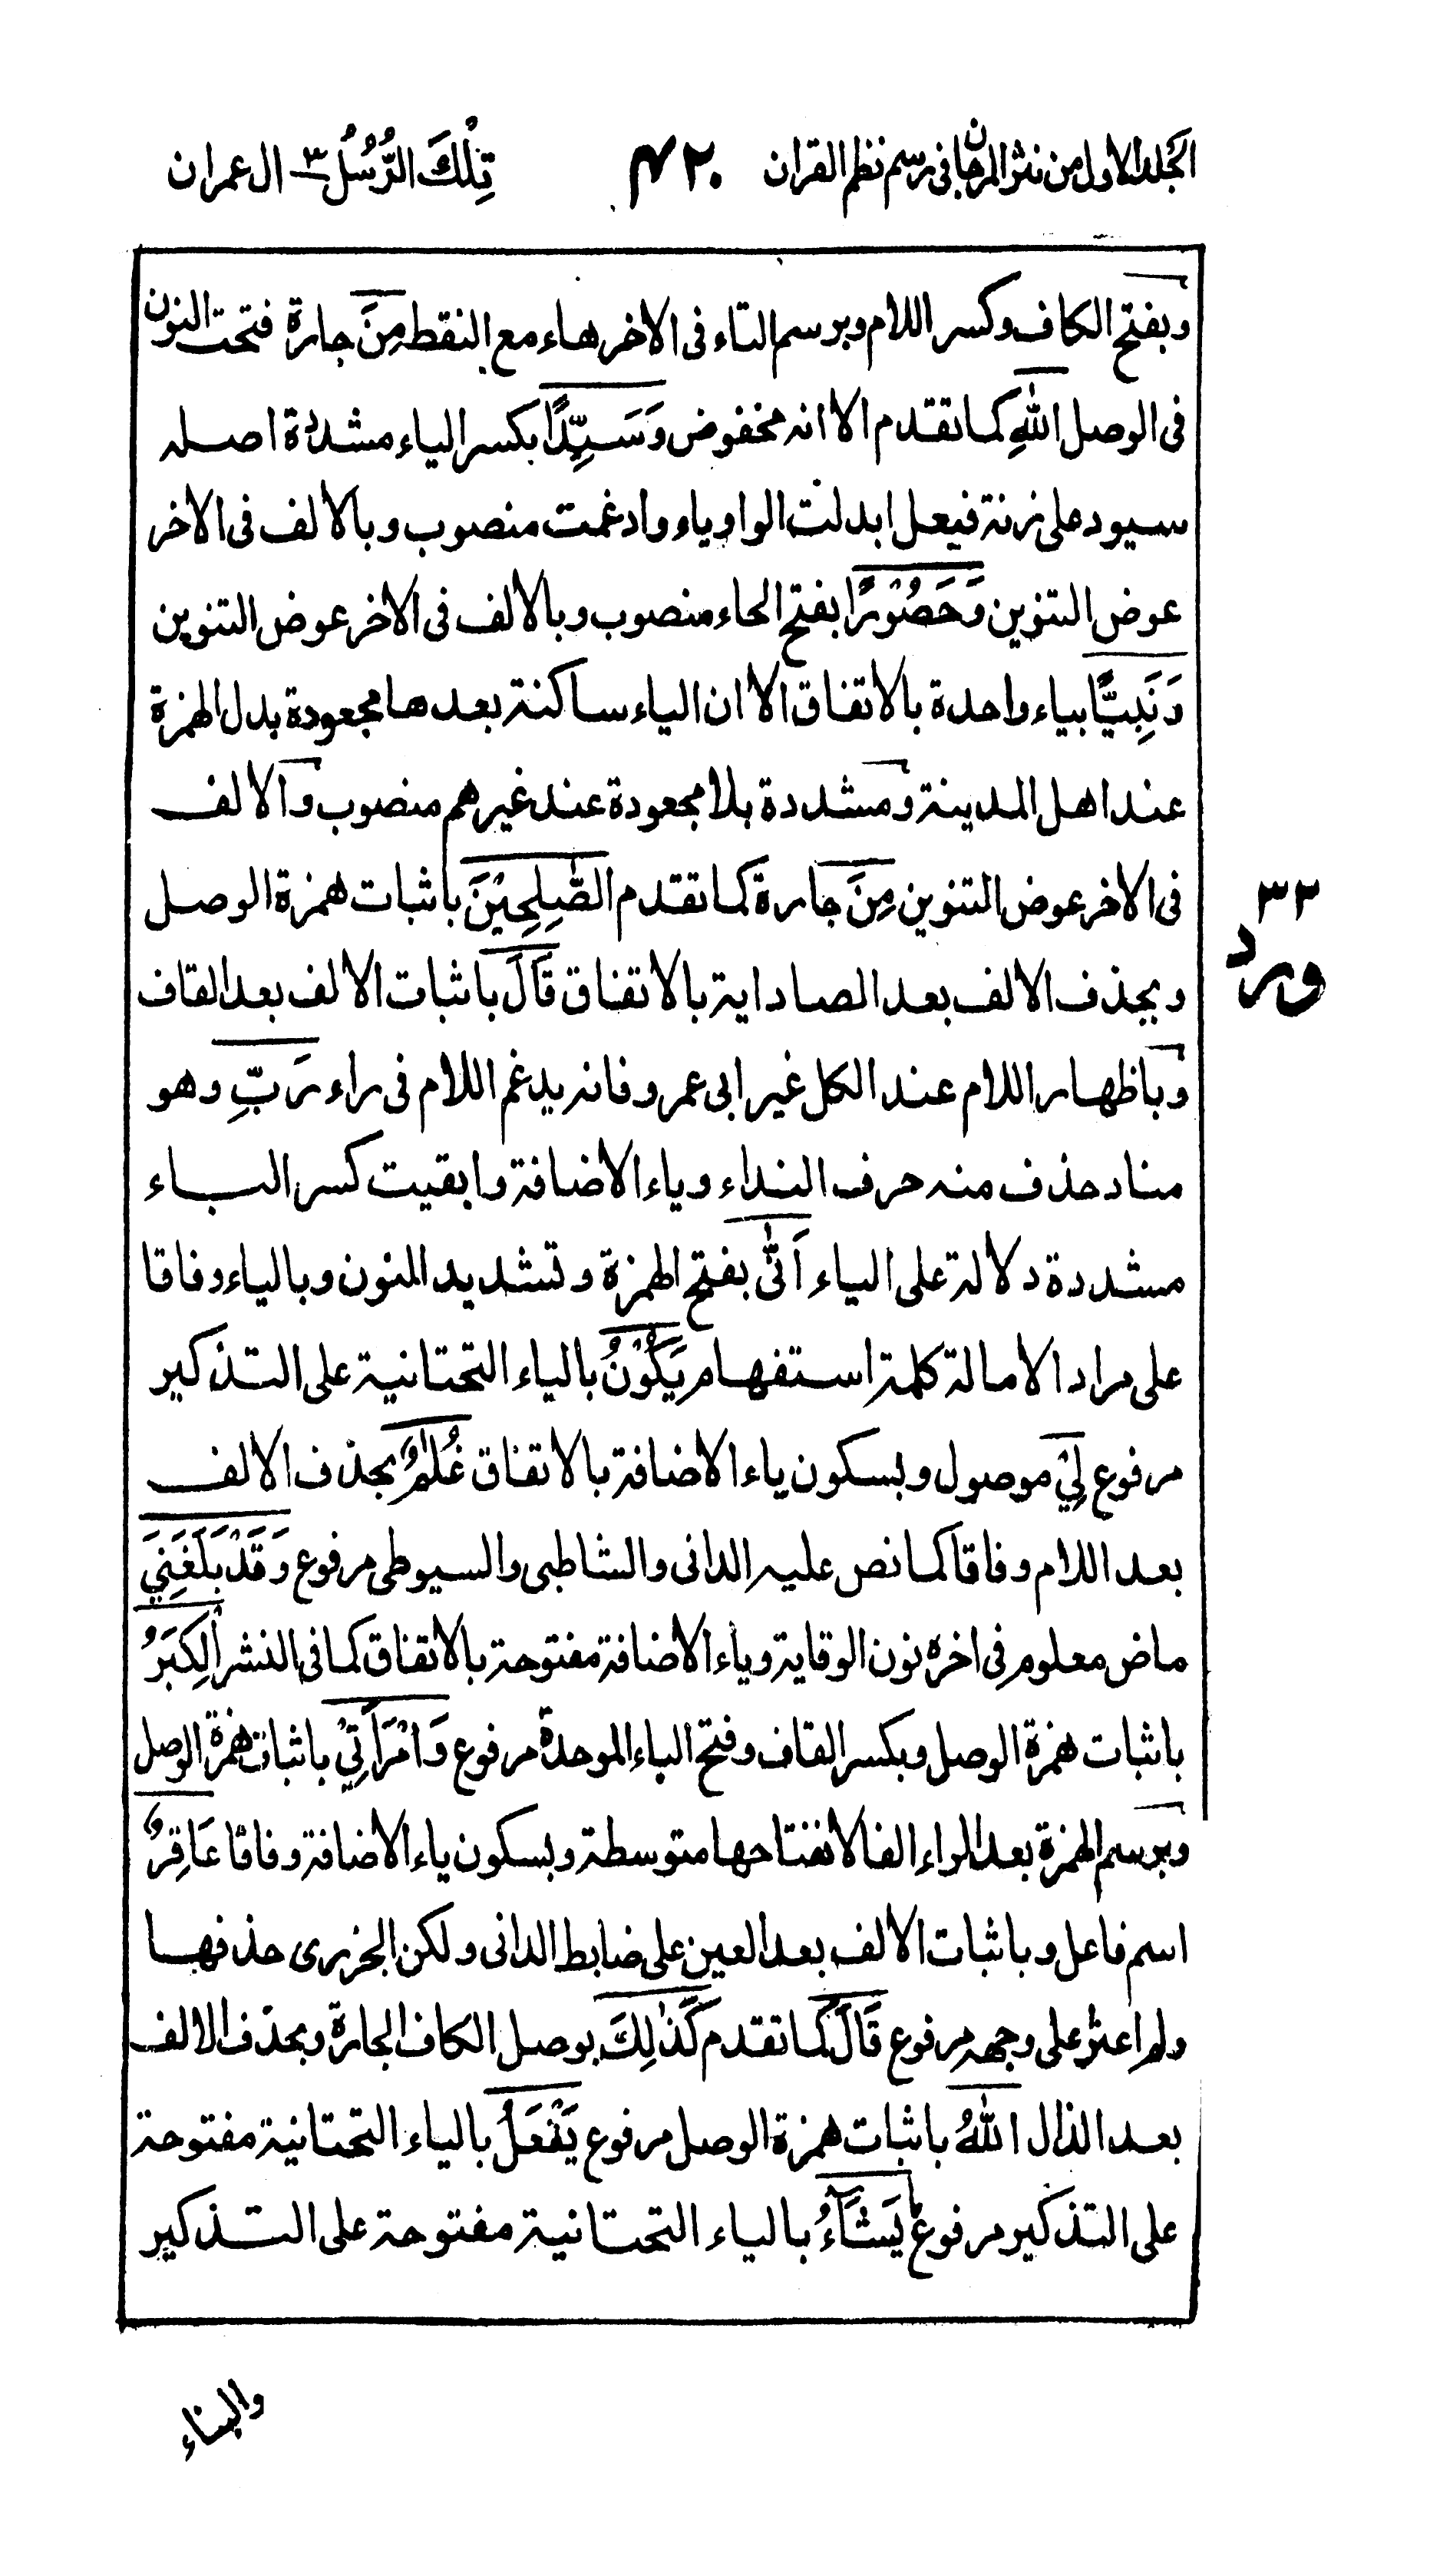 الجلد الاول من نثر المرجان فى رسم نظم القران ٤٢٠ تِلْكَ الرُّسُلُ ٣ ال عمران
وبفتح الكاف وكسر اللام وبرسم التاء فى الاخر هاء مع النقط مِنَ جارة فتحت النون
فى الوصل اللّٰهِ كما تقدم الا انه مخفوض وَسَيِّدًا بكسر الياء مشددة اصله
سيود على زنة فيعل ابدلت الواو ياء وادغمت منصوب وبالالف فى الاخر
عوض التنوين وَحَصُوْرًا بفتح الحاء منصوب وبالالف فى الاخر عوض التنوين
وَنَبِيًّا بياء واحدة بالاتفاق الا ان الياء ساكنة بعدها مجعودة بدل الهمزة
عند اهل المدينة ومشددة بلا مجعودة عند غيرهم منصوب والالف
فى الاخر عوض التنوين مِنَ جارة كما تقدم الصّٰلِحِيْنَ باثبات همزة الوصل
وبحذف الالف بعد الصاد اية بالاتفاق قَالَ باثبات الالف بعد القاف
وباظهار اللام عند الكل غير ابى عمرو فانه يدغم اللام فى راء رَبِّ وهو
مناد حذف منه حرف النداء وياء الاضافة وابقيت كسر الباء
مشددة دلالة على الياء اَنّٰى بفتح الهمزة وتشديد النون وبالياء وفاقا
على مراد الامالة كلمة استفهام يَكُوْنُ بالياء التحتانية على التذكير
مرفوع لِيْ موصول وبسكون ياء الاضافة بالاتفاق غُلٰمٌ بحذف الالف
بعد اللام وفاقا كما نص عليه الدانى والشاطبى والسيوطى مرفوع وَقَدْ بَلَغَنِيَ
ماض معلوم فى اخره نون الوقاية وياء الاضافة مفتوحة بالاتفاق كما فى النشر الْكِبَرُ
باثبات همزة الوصل وبكسر القاف وفتح الباء الموحدة مرفوع وَامْرَاَتِيْ باثبات همزة الوصل
وبرسم الهمزة بعد الراء الفا لانفتاحها متوسطة وبسكون ياء الاضافة وفاقا عَاقِرٌ
اسم فاعل وباثبات الالف بعد العين على ضابط الدانى ولكن الجزرى حذفها
ولم اعثر على وجهه مرفوع قَالَ كما تقدم كَذٰلِكَ بوصل الكاف الجارة وبحذف الالف
بعد الذال اللّٰهُ باثبات همزة الوصل مرفوع يَفْعَلُ بالياء التحتانية مفتوحة
على التذكير مرفوع يَشَآءُ بالياء التحتانية مفتوحة على التذكير
٣٢
ورد
والبناء